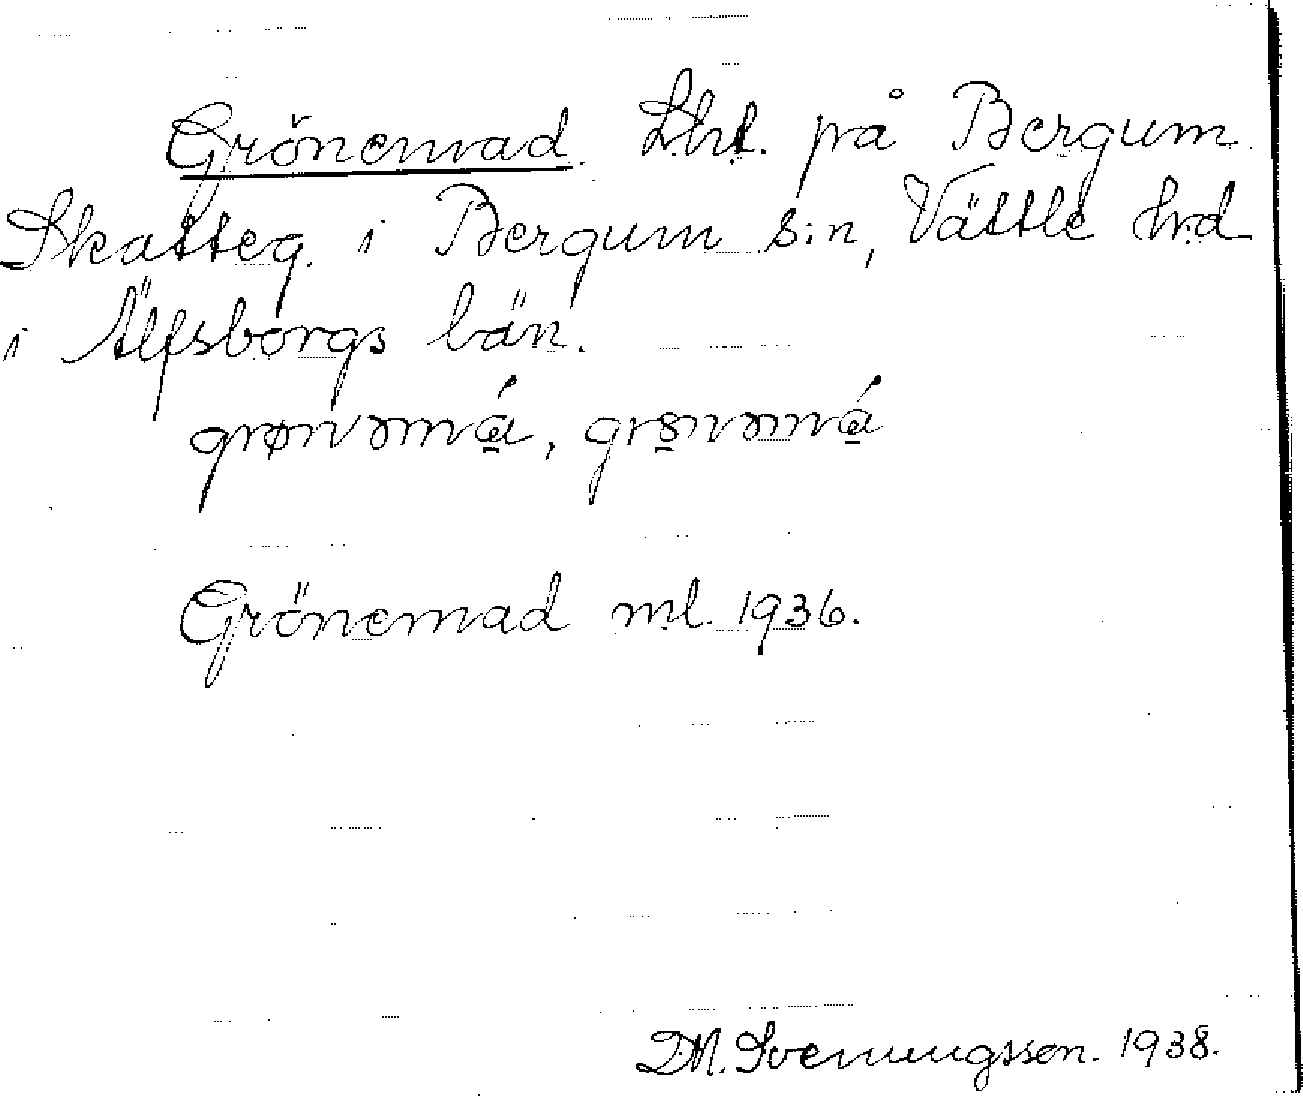 Grönemad. Lht. på Bergum
Skatteg. i Bergum s:n, Vättle hd
i Älfsborgs län.
grønəmá̱, grꞩnəmá̱
Grönemad ml. 1936.
D.M. Svenungsson. 1938.